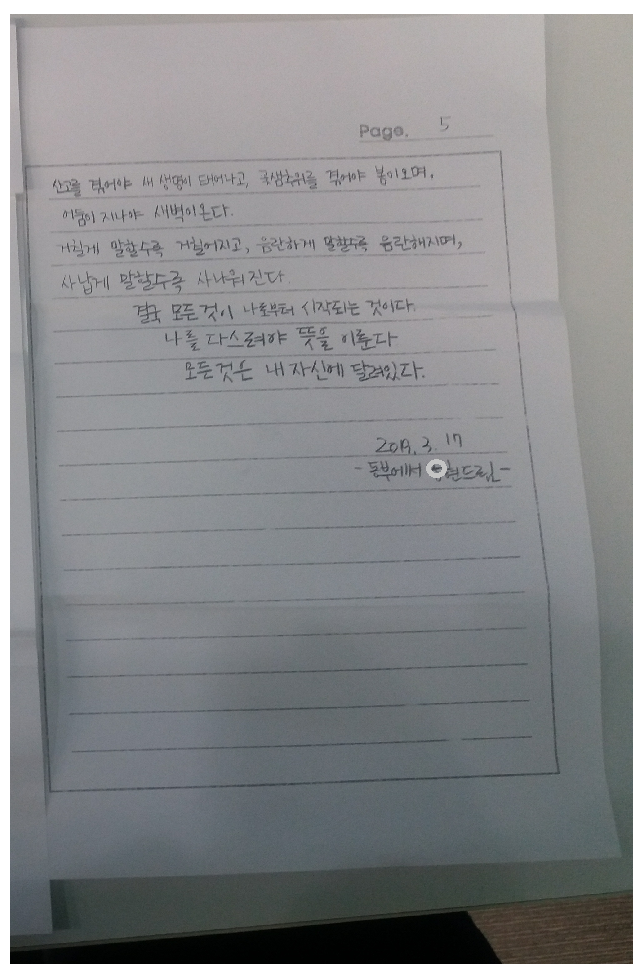 Page. 5
산고를 겪어야 새 생명이 태어나고, 꽃샘추위를 겪어야 봄이오며,
어둠이 지나야 새벽이온다.
거칠게 말할수록 거칠어지고, 음란하게 말할수록 음란해지며,
사납게 말할수록 사나워진다.
결국 모든것이 나로부터 시작되는 것이다.
나를 다스려야 뜻을 이룬다
모든것은 내 자신에 달려있다.
2019. 3. 17
-동부에서 현드림-